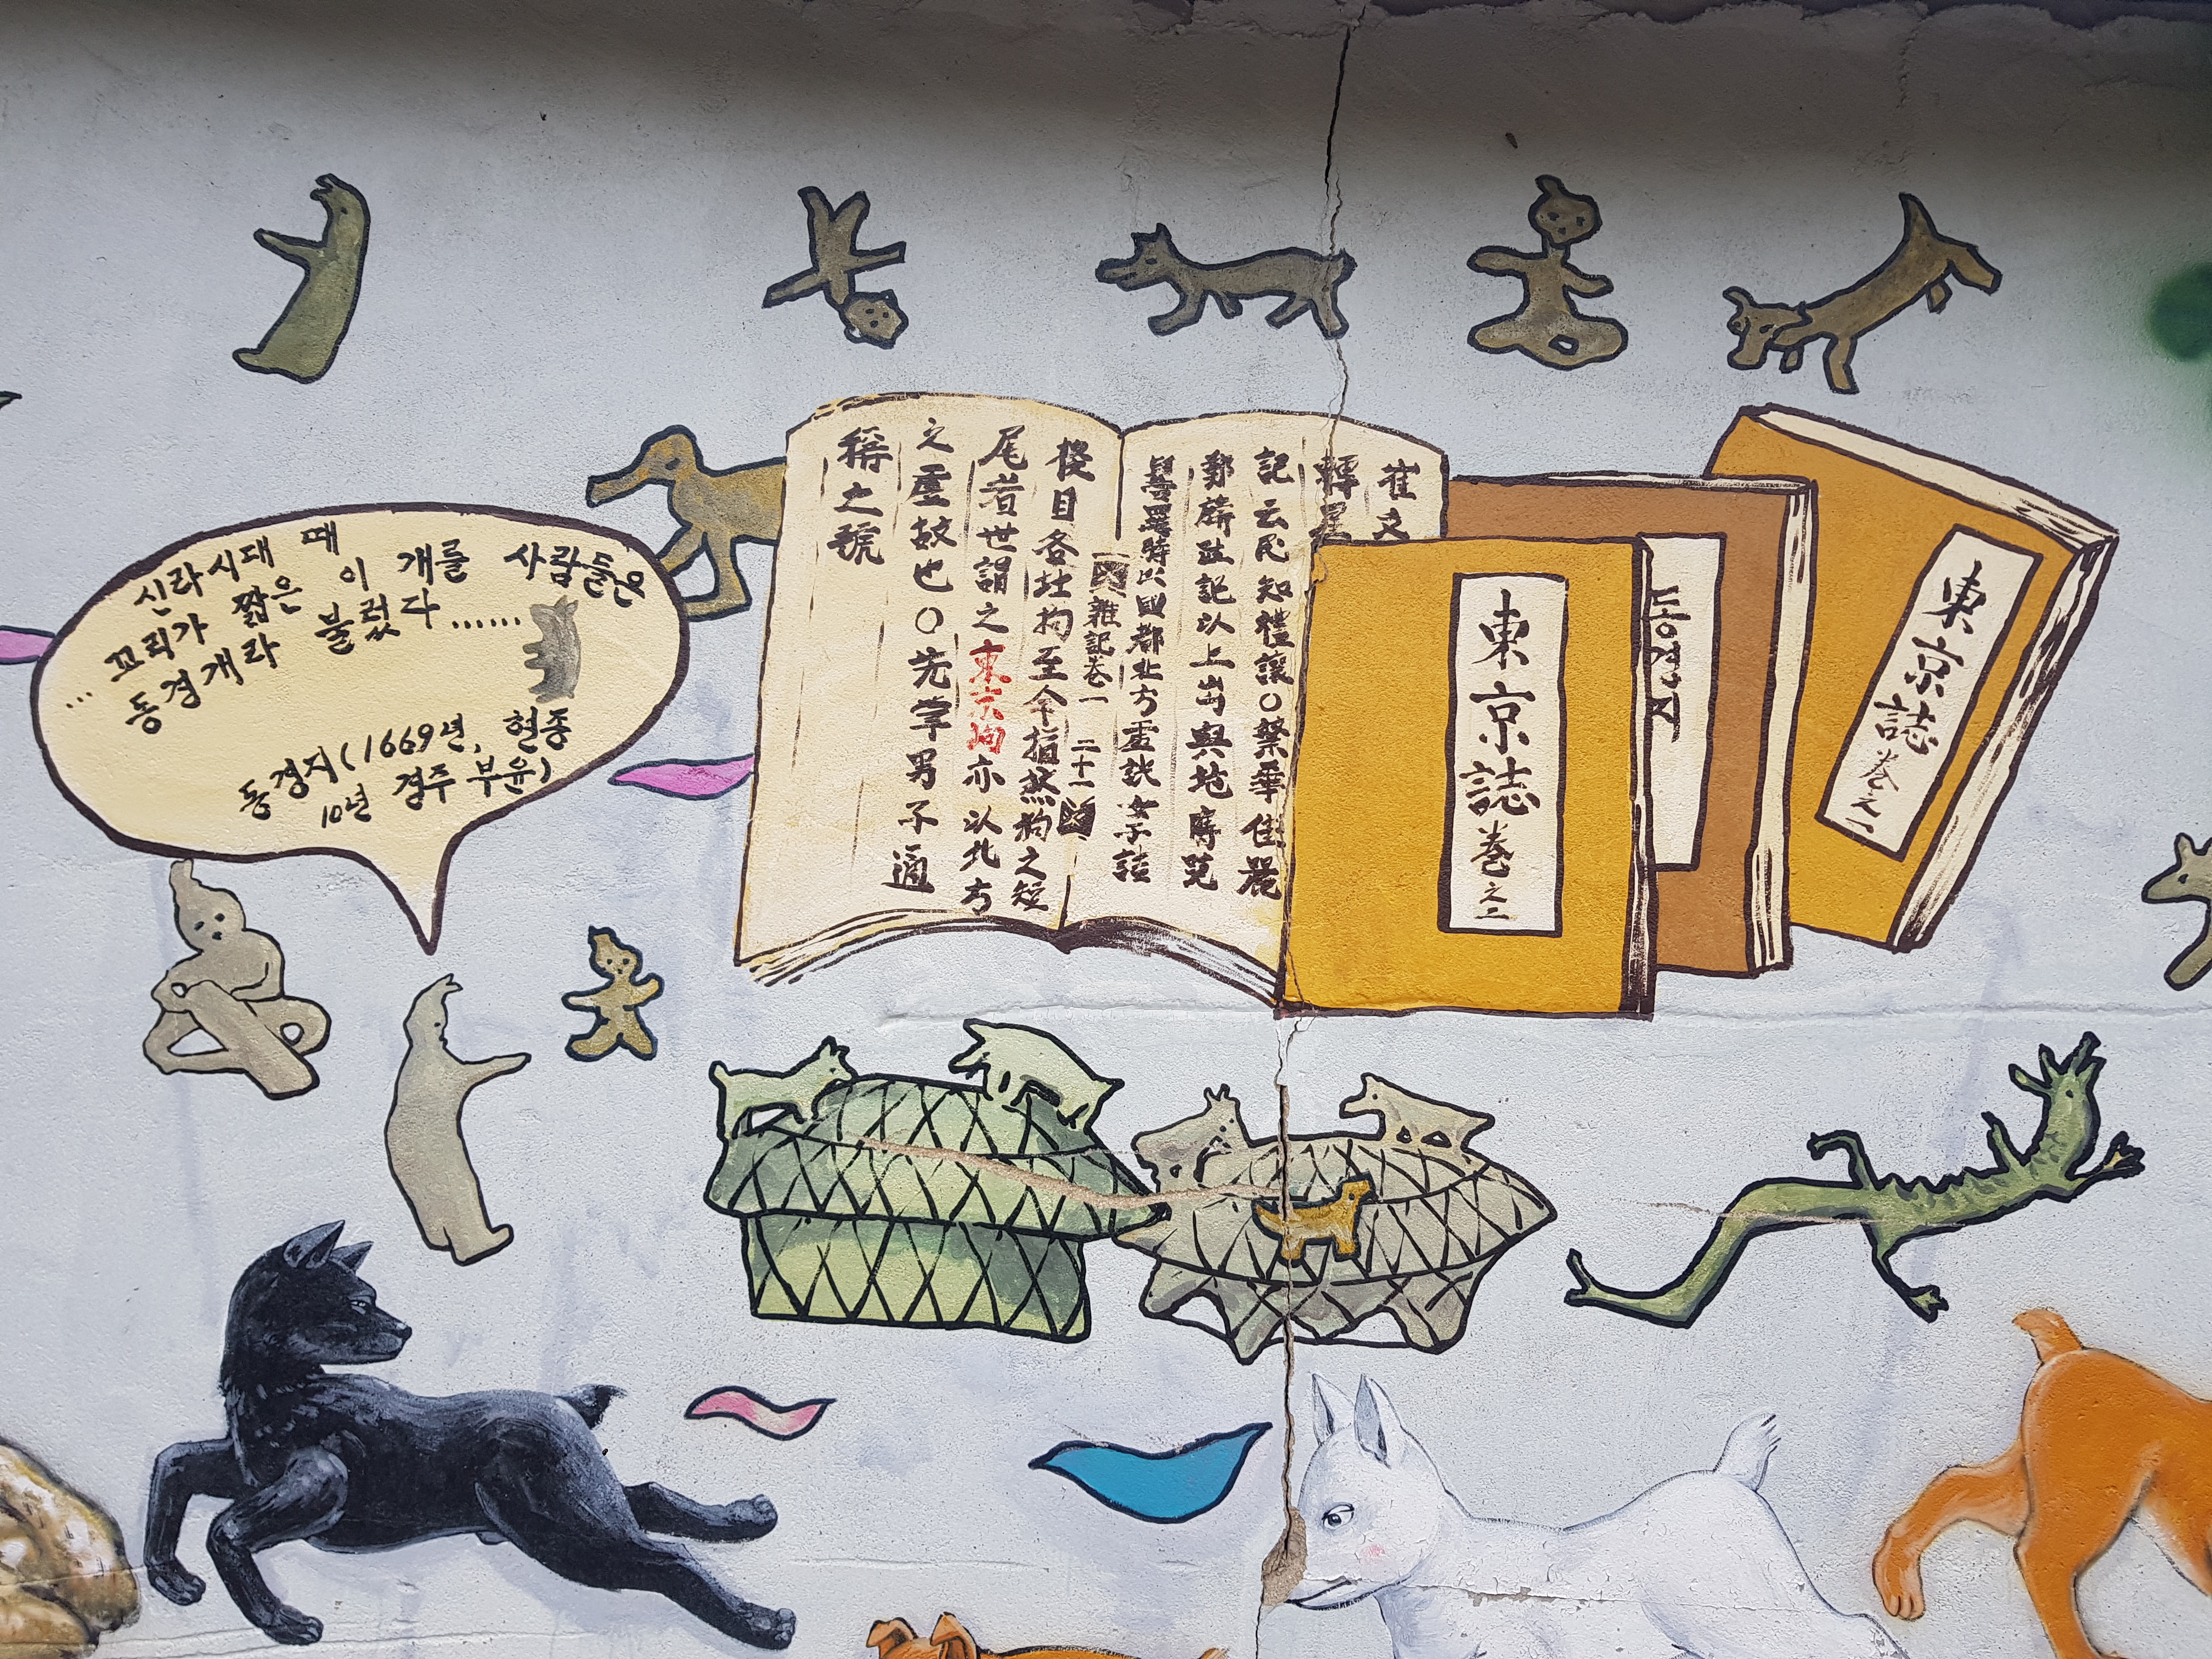 신라시대 때
... 꼬리가 짧은 이 개를 사람들은
동경개라 불렀다 ......
동경지(1669년, 현종
10년 경주 부윤)
崔文
記云民知禮讓○繁華佳麗
記以上出與地勝覽
羅時以國都北方虛
雜記卷一 二十一
至今指 狗之短
尾者世謂之東京狗亦以北方
之虛故也○先輩男子適
稱之號
東京誌 卷之二
동경지
東京誌 卷之一